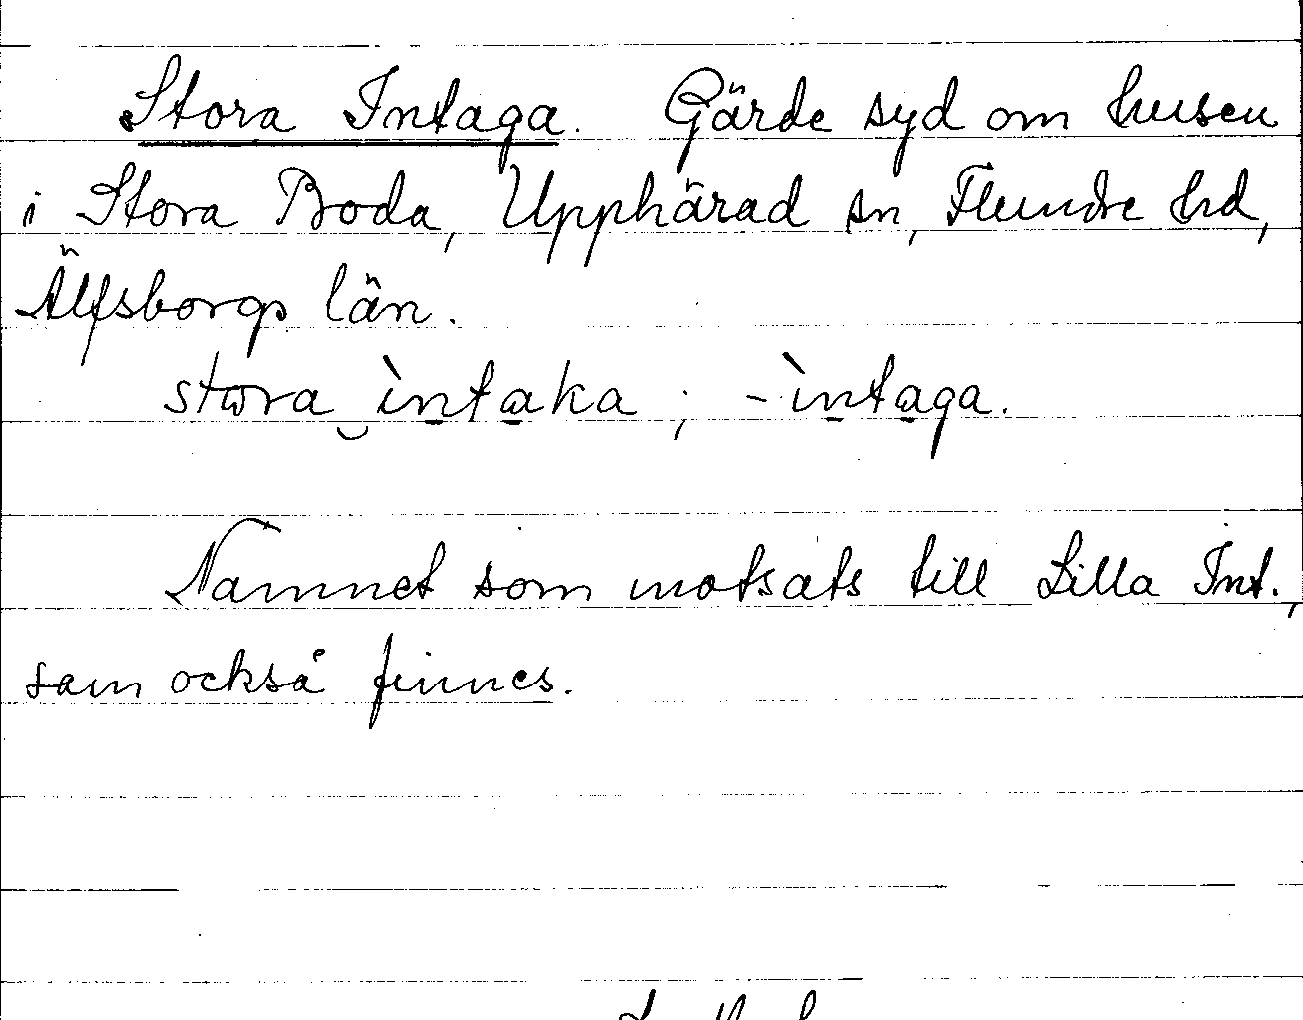 Stora Intaga. Gärde syd om husen
i Stora Boda, Upphärad sn, Flundre hd,
Älfsborgs län.
stωra ìntaka ; -ìntaga.
Namnet som motsats till Lilla Int.,
som också finnes.